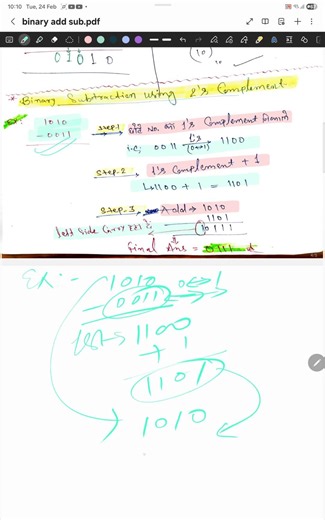 10:10 Tue, 24 Feb
binary add sub.pdf
01010
(10)
* Binary Subtraction using 2's Complement
Ex:-
1010
- 0011
Step-1 छोटे No. का 1's Complement निकालेंगे
i.e; 0011 1's (0→1) 1100
Step-2 1's Complement + 1
1100 + 1 = 1101
Step-3 Add → 1010
1101
left side Carry 10111
final Ans = 0111
Ex:-
1010
- 0011 0↔1
1100
+ 1
1101
1010